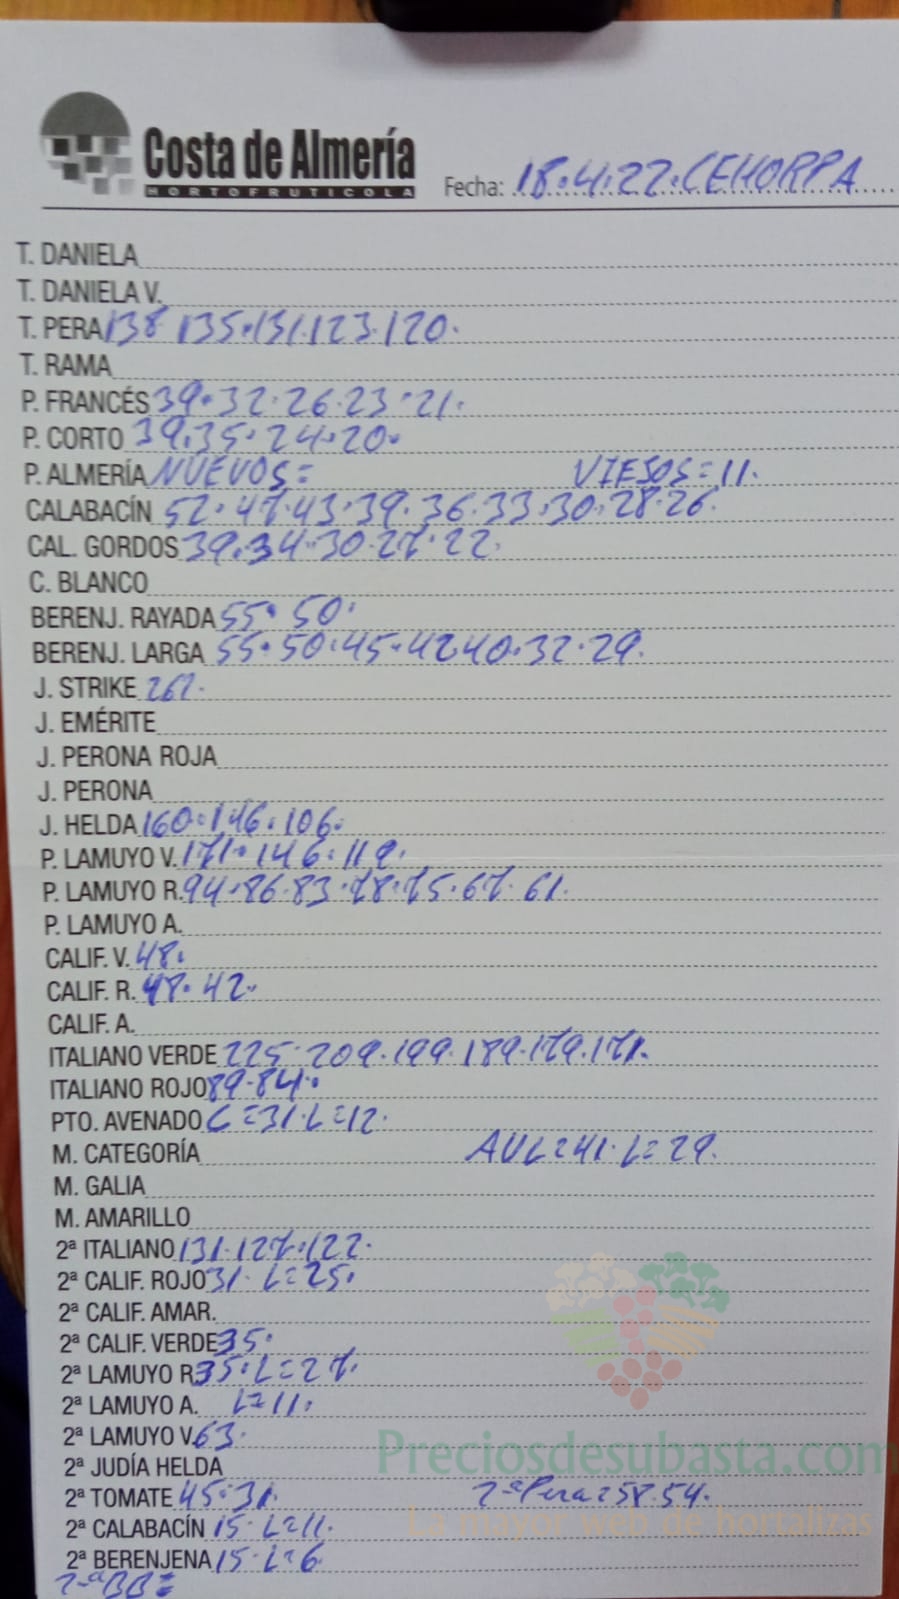 Costa de Almería
HORTOFRUTICOLA
Fecha: 18.4.22.CEHORPA
T. DANIELA
T. DANIELA V.
T. PERA 138 135.131.123.120.
T. RAMA
P. FRANCÉS 39.32.26.23.21.
P. CORTO 39.35.24.20.
P. ALMERÍA NUEVOS= VIEJOS=11.
CALABACÍN 52.47.43.39.36.33.30.28.26.
CAL. GORDOS 39.34.30.27.22.
C. BLANCO
BERENJ. RAYADA 55.50.
BERENJ. LARGA 55.50.45.42 40.32.29.
J. STRIKE 267.
J. EMÉRITE
J. PERONA ROJA
J. PERONA
J. HELDA 160.146.106.
P. LAMUYO V. 171.146.119.
P. LAMUYO R. 94.86.83.78.75.67.61.
P. LAMUYO A.
CALIF. V. 48.
CALIF. R. 48.42.
CALIF. A.
ITALIANO VERDE 225.209.199.189.179.171.
ITALIANO ROJO 89.84.
PTO. AVENADO C=31.L=12.
M. CATEGORÍA L=29.
M. GALIA
M. AMARILLO
2ª ITALIANO 131.127.122.
2ª CALIF. ROJO 31.L=25.
2ª CALIF. AMAR.
2ª CALIF. VERDE 35.
2ª LAMUYO R 35.L=27.
2ª LAMUYO A. L=11.
2ª LAMUYO V. 63.
2ª JUDÍA HELDA
2ª TOMATE 45.31. 2ª Pera=58.54.
2ª CALABACÍN 15.L=11.
2ª BERENJENA 15.L=6.
2ªBB=
Preciosdesubasta.com
La mayor web de hortalizas